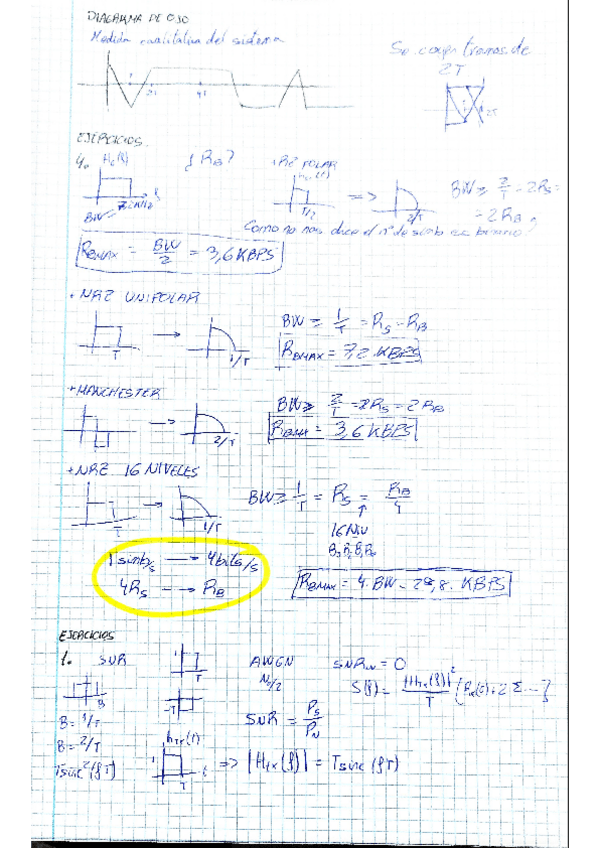 DIAGRAMA DE OJO
Medida cualitativa del sistema
Se cogen tramos de
2T
2T
EJERCICIOS
4. Hc(f)
¿RB?
RZ POLAR
T/2
=>
2/T
BW ≥ 2/T = 2RS =
= 2RB
BW =
Como no nos dice el nº de simb es binario
RBMAX = BW/2 = 3,6 KBPS
+ NRZ UNIPOLAR
T
1/T
BW ≥ 1/T = RS = RB
RBMAX = 7,2 KBPS
+ MANCHESTER
2/T
BW ≥ 2/T = 2RS = 2RB
RBMAX = 3,6 KBPS
+ NRZ 16 NIVELES
T
1/T
BW ≥ 1/T = RS = RB/4
↑
16 Niv
1 simb/s → 4 bits/s
4RS --→ RB
RBMAX = 4·BW = 28,8 KBPS
EJERCICIOS
1. SNR
T
AWGN
N0/2
B
T
B = 1/T
B = 2/T
Tsinc²(fT)
SNR = PS/PN
S(f) = |Htx(f)|²/T
hTx(t)
T
t
=> |Htx(f)| = Tsinc(fT)